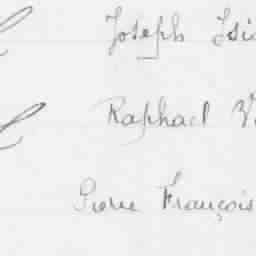 Joseph Isi
Raphael V
Pierre François